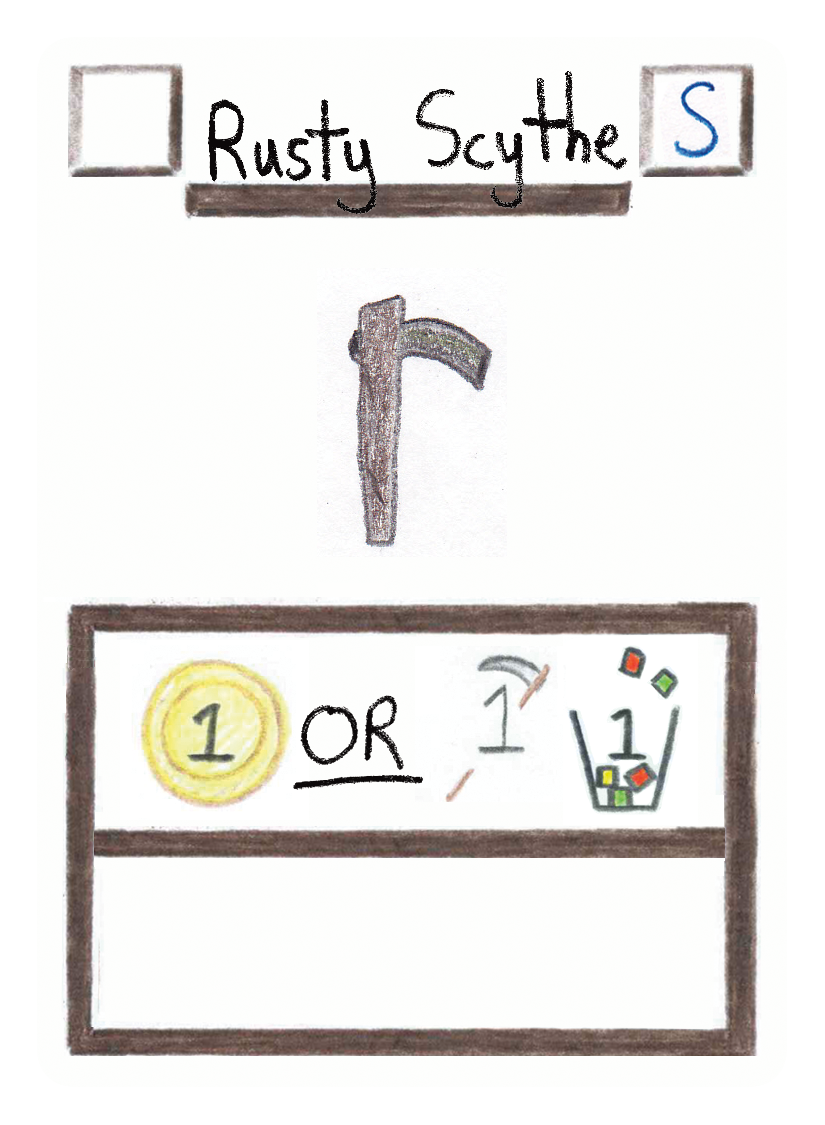 Rusty Scythe S
1 OR 1 1